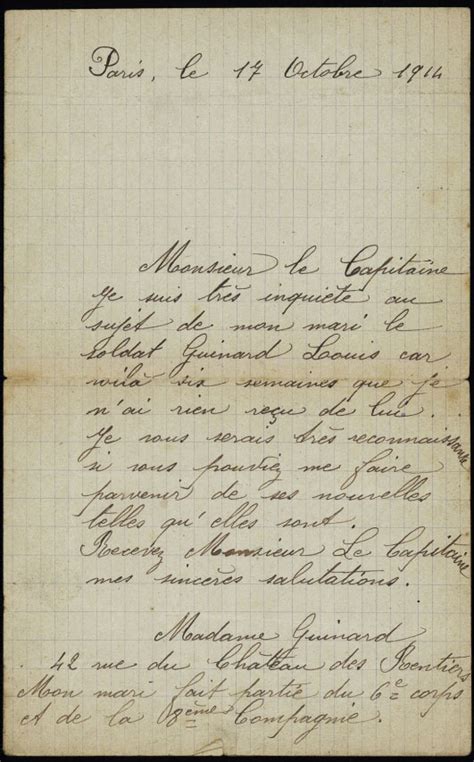 Paris, le 17 Octobre 1914
Monsieur le Capitaine
Je suis très inquiète au
sujet de mon mari le
soldat Guinard Louis car
voilà six semaines que je
n'ai rien reçu de lui.
Je vous serais très reconnaissante
si vous pouviez me faire
parvenir de ses nouvelles
telles qu'elles sont.
Recevez Monsieur Le Capitaine
mes sincères salutations.
Madame Guinard
42 rue du Château des Rentiers
Mon mari fait partie du 6e corps
et de la 8ème Compagnie.